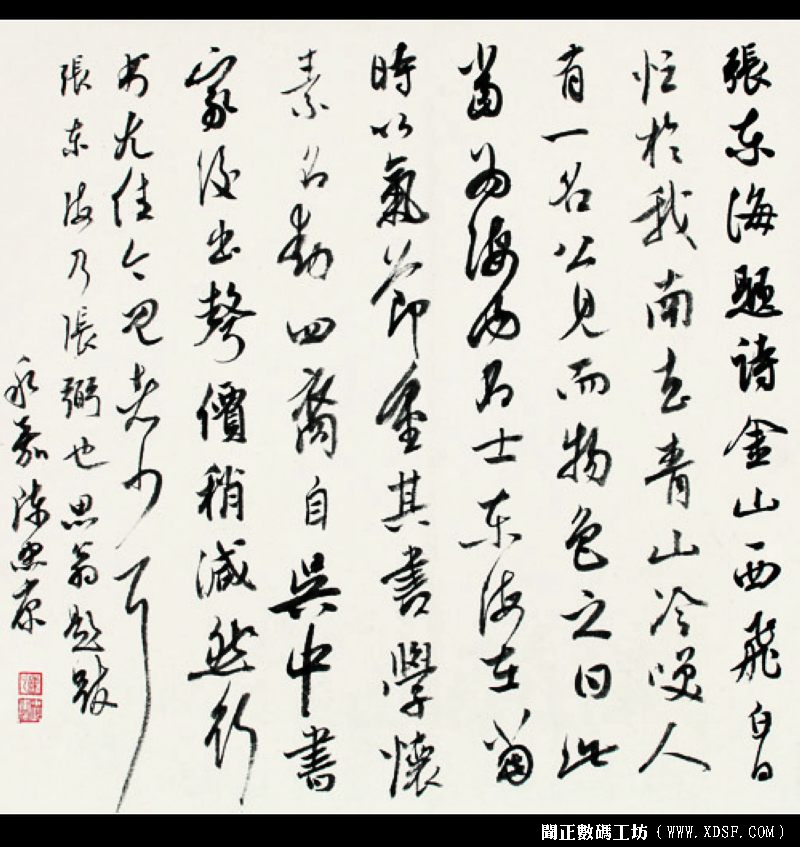 張東海題詩金山西飛白日
忙於我南去青山冷咲人
有一名公見而物色之曰此
當為海內名士東海在當
時以氣節重其書學懷
素名動四裔自吳中書
家後出聲價稍減然行
書尤佳今見者少耳
張東海乃張弼也思翁題跋
永嘉陳忠康
聞正數碼工坊（WWW.XDSF.COM）